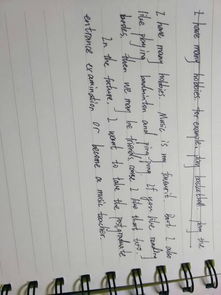 I have many hobbies. for example, play basketball, play the
I have many hobbies. Music is my favorit. But I also
like playing badminton and ping-pong. If you like reading
books, then we may be friends, cause I like that too.
In the fucture, I want to take the postgraduate
entrance examination or become a music teacher.